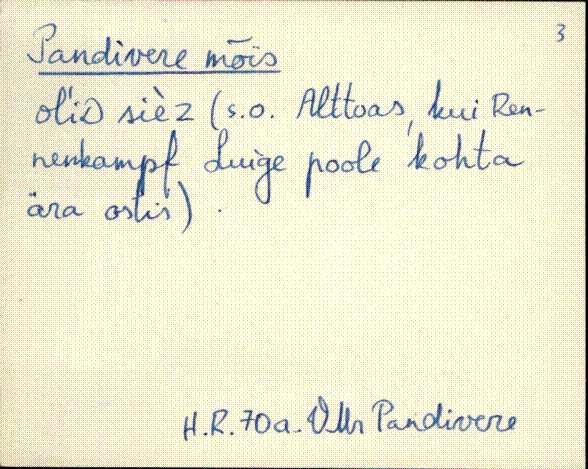 3
Pandivere mõis
olid sièz (s.o. Alttoas, kui Ren-
nenkampf Luige poole kohta
ära ostis).
H.R. 70a. VMr Pandivere